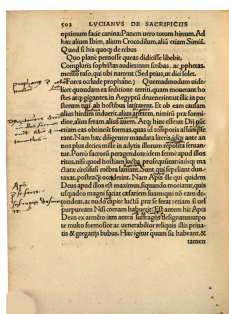 502 LVCIANVS DE SACRIFICIIS
optimum facie canina: Panem uero totum hircum. Ad
hæc alium Ibim, alium Crocodilum, aliũ etiam Simiã.
Quod si his quoq; de rebus
Quo plane pernosse queas didicisse libebit.
Compluris sophistas audies tum scribas, ac prophetas,
mento raso, qui tibi narrent (Sed prius, ut dici solet,
Fores occlude prophane.) Quemadmodum uide
licet quondam ea seditione territi, quam mouerant ho
stes atq; gigantes, in Aegyptũ deuenerint
sterum qui ab hostibus latitarent. Et ob eam causam
alius hircum induerit, alius arietem, nimirũ præ formi
dine, alius feram, alius auem. Atq; hinc esse ut Dijs
etiam eas obtineant formas, quas id temporis assumpse
runt. Nam hæc diligenter mandata literis, ante an
nos plus decies mille in adytis illorum reposita seruan
tur. Porrò sacra peragendi modus, idem ferme apud illos
ritus, nisi quod hostiam luctu prosequuntur
ctatæ circũfusi membra laniant. Sunt qui sepeliant dun
taxat, posteaquam occiderint. Nam Apis ille qui quidem
Deus apud illos est maximus, siquando moriatur, quis
usqueadeo magni faciat cæsariem suam, qui nõ eam de-
tondeat, ac nudo capite luctũ præ se ferat: etiam si uel
purpuream Nisi comam habuerit: Est autem hic Apis
Deus ex armento iam antea suffragijs designatus, utpo
te multo formosior ac uenerabilior reliquis illis priua
tis & gregarijs bubus. Hæc igitur quum sic habeant,
tamen